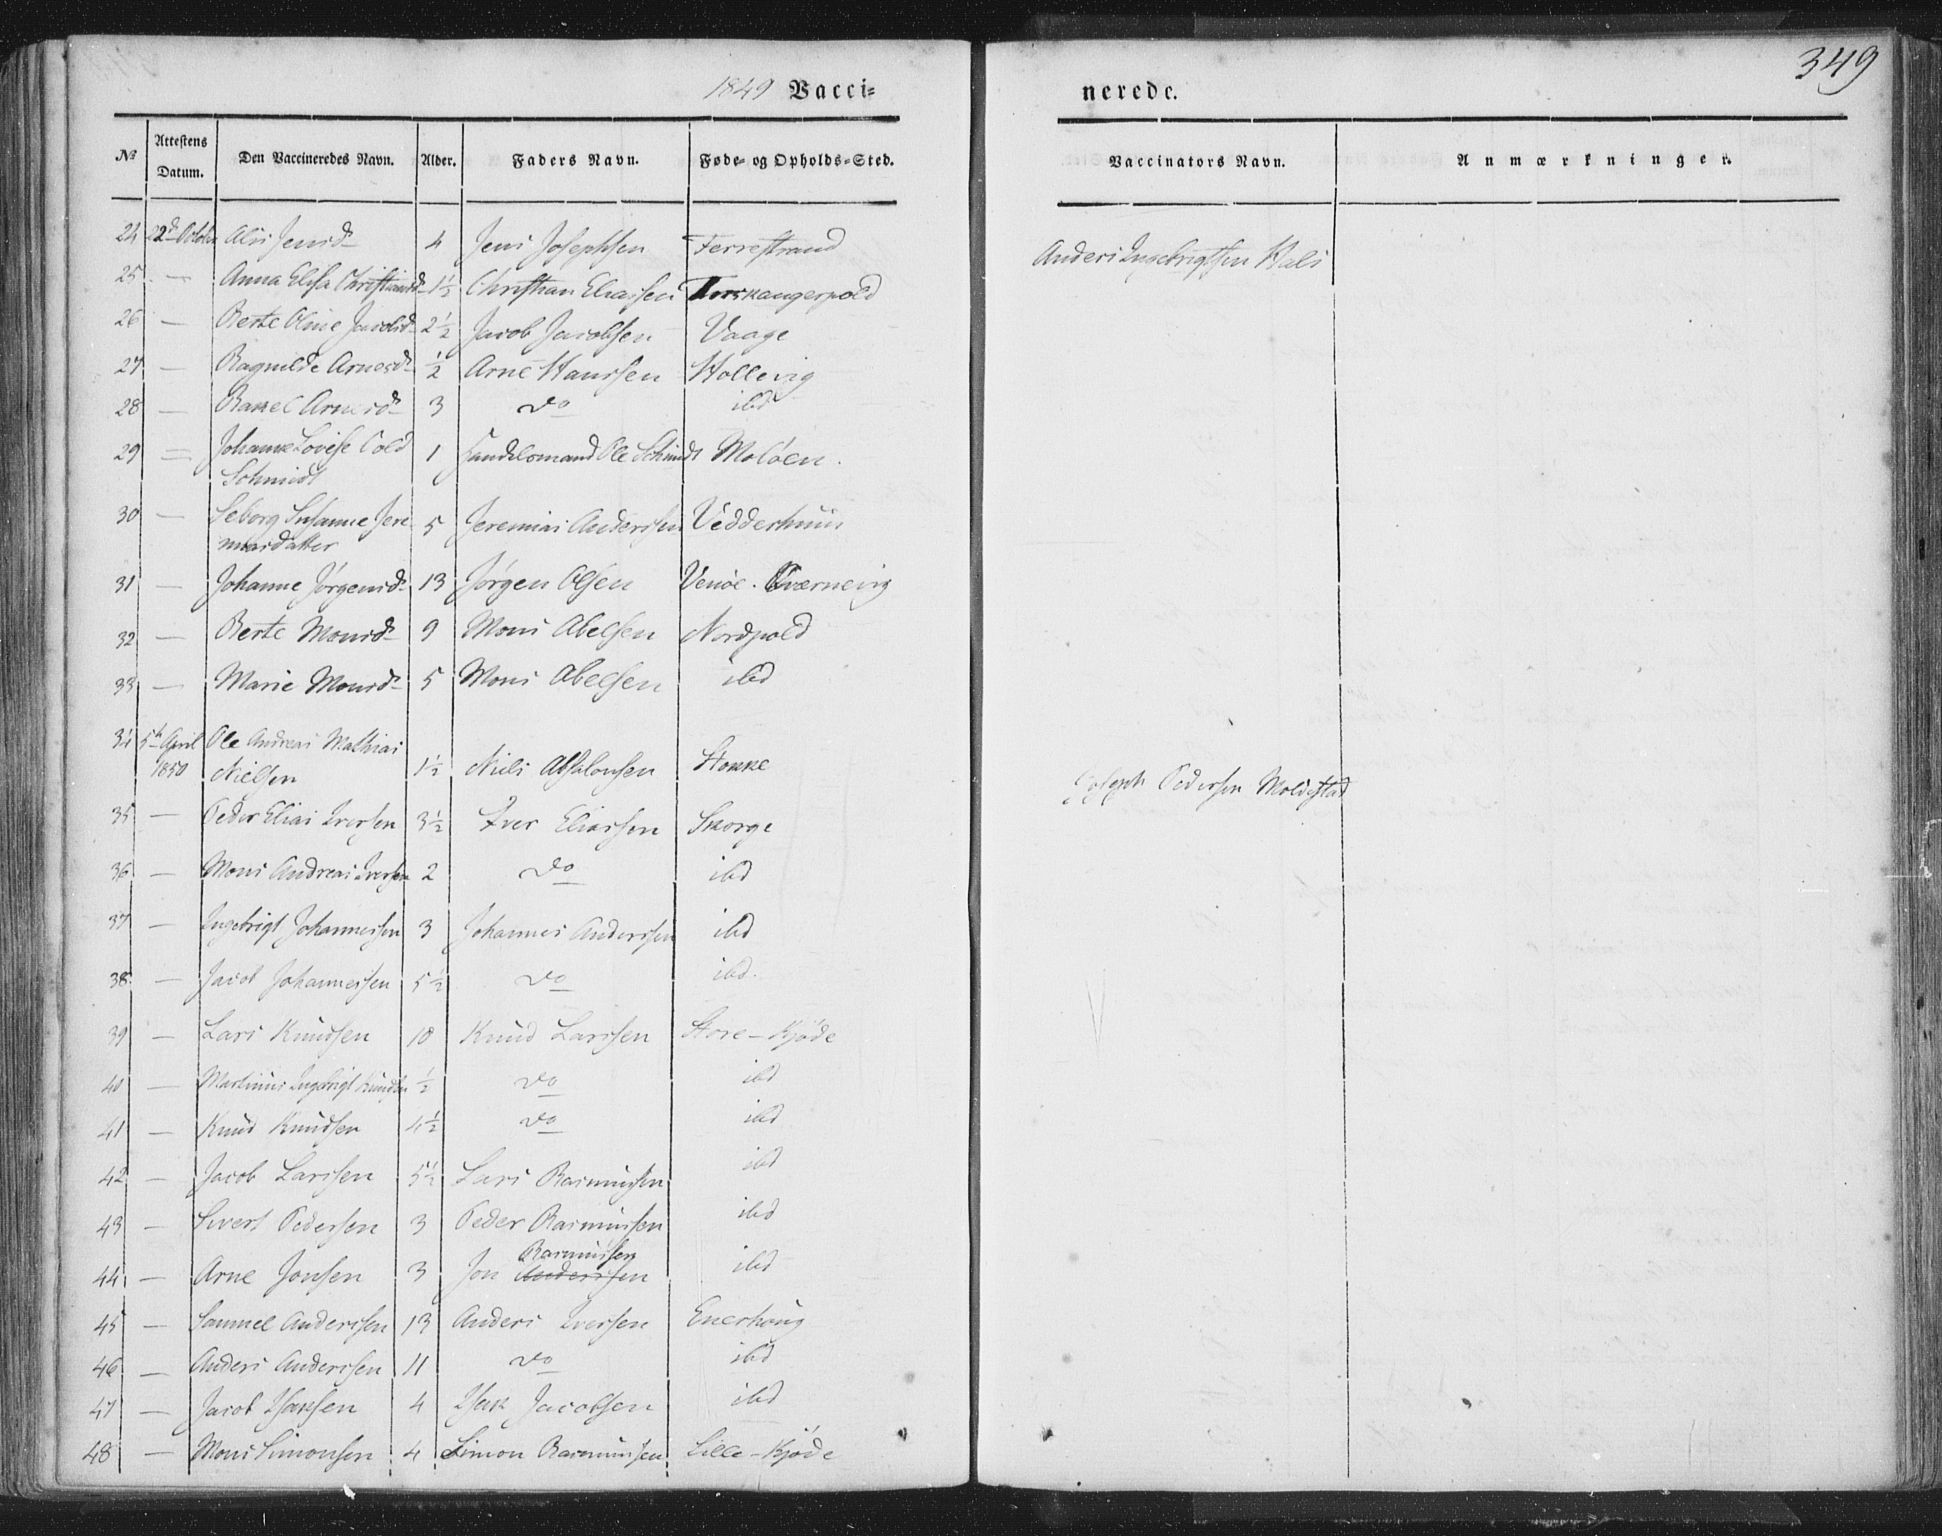 349
1849 Vacci=
nerede.
№ Attestens Datum. Den Vaccineredes Navn. Alder. Faders Navn. Føde- og Opholds-Sted.
Vaccinators Navn. Anmærkninger.
24 22d October Alis Jensd- 4 Jens Josephsen Ferrestrand
Anders Ingebrigtsen Hals
25 — Anna Elisa Christiansd- 1½ Christian Eliassen Torskangerpold
26 — Berte Oline Jacobsd- 2½ Jacob Jacobsen Vaage
27 — Ragnilde Arnesd- ½ Arne Hanssen Hollevig
28 — Rakel Arnesd- 3 do ibd
29 — Johanne Lovise Cold 1 Handelsmand Ole Schmidt Moløen.
Schmidt
30 — Seborg Susanne Jere- 5 Jeremias Anderssen Vedderhuus
miasdatter
31 — Johanne Jørgensd- 13 Jørgen Olsen Venøe. Kværnevig
32 — Berte Monsd- 9 Mons Abelsen Nordpold
33 — Marie Monsd- 5 Mons Abelsen ibd
34 5te April Ole Andreas Mathias
1850 Nielsen 1½ Niels Absalonsen Stokke
Joseph Pedersen Moldestad
35 — Peder Elias Iversen 3½ Iver Eliassen Skorge
36 — Mons Andreas Iversen 2 do ibd
37 — Ingebrigt Johannessen 3 Johannes Anderssen ibd
38 — Jacob Johannessen 5½ do ibd.
39 — Lars Knudsen 10 Knud Larssen Store-Kjøde
40 — Martinus Ingebrigt Knudsen ½ do ibd
41 — Knud Knudsen 4½ do ibd
42 — Jacob Larssen 5½ Lars Rasmussen ibd
43 — Sivert Pedersen 3 Peder Rasmussen ibd
Rasmussen
44 — Arne Jonsen 3 Jon Anderssen ibd
45 — Samuel Anderssen 13 Anders Iversen Enerhoug
46 — Anders Anderssen 11 do ibd
47 — Jacob Isaksen 4 Isak Jacobsen ibd
48 — Mons Simonsen 4 Simon Rasmussen Lille-Kjøde